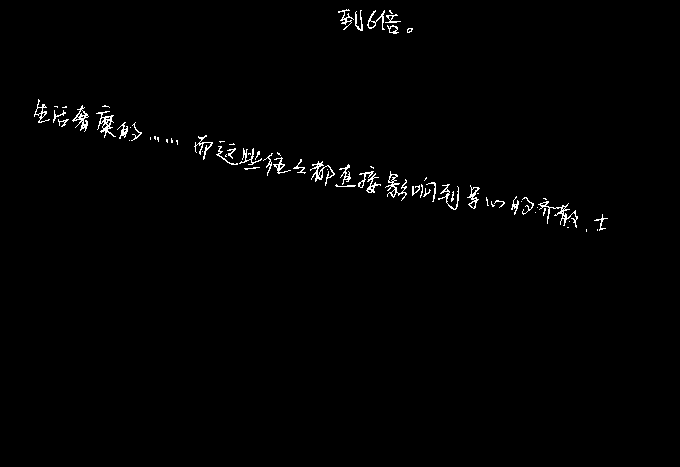 到6倍。
生活奢糜的……而这些往々都直接影响到导心的齐散、士